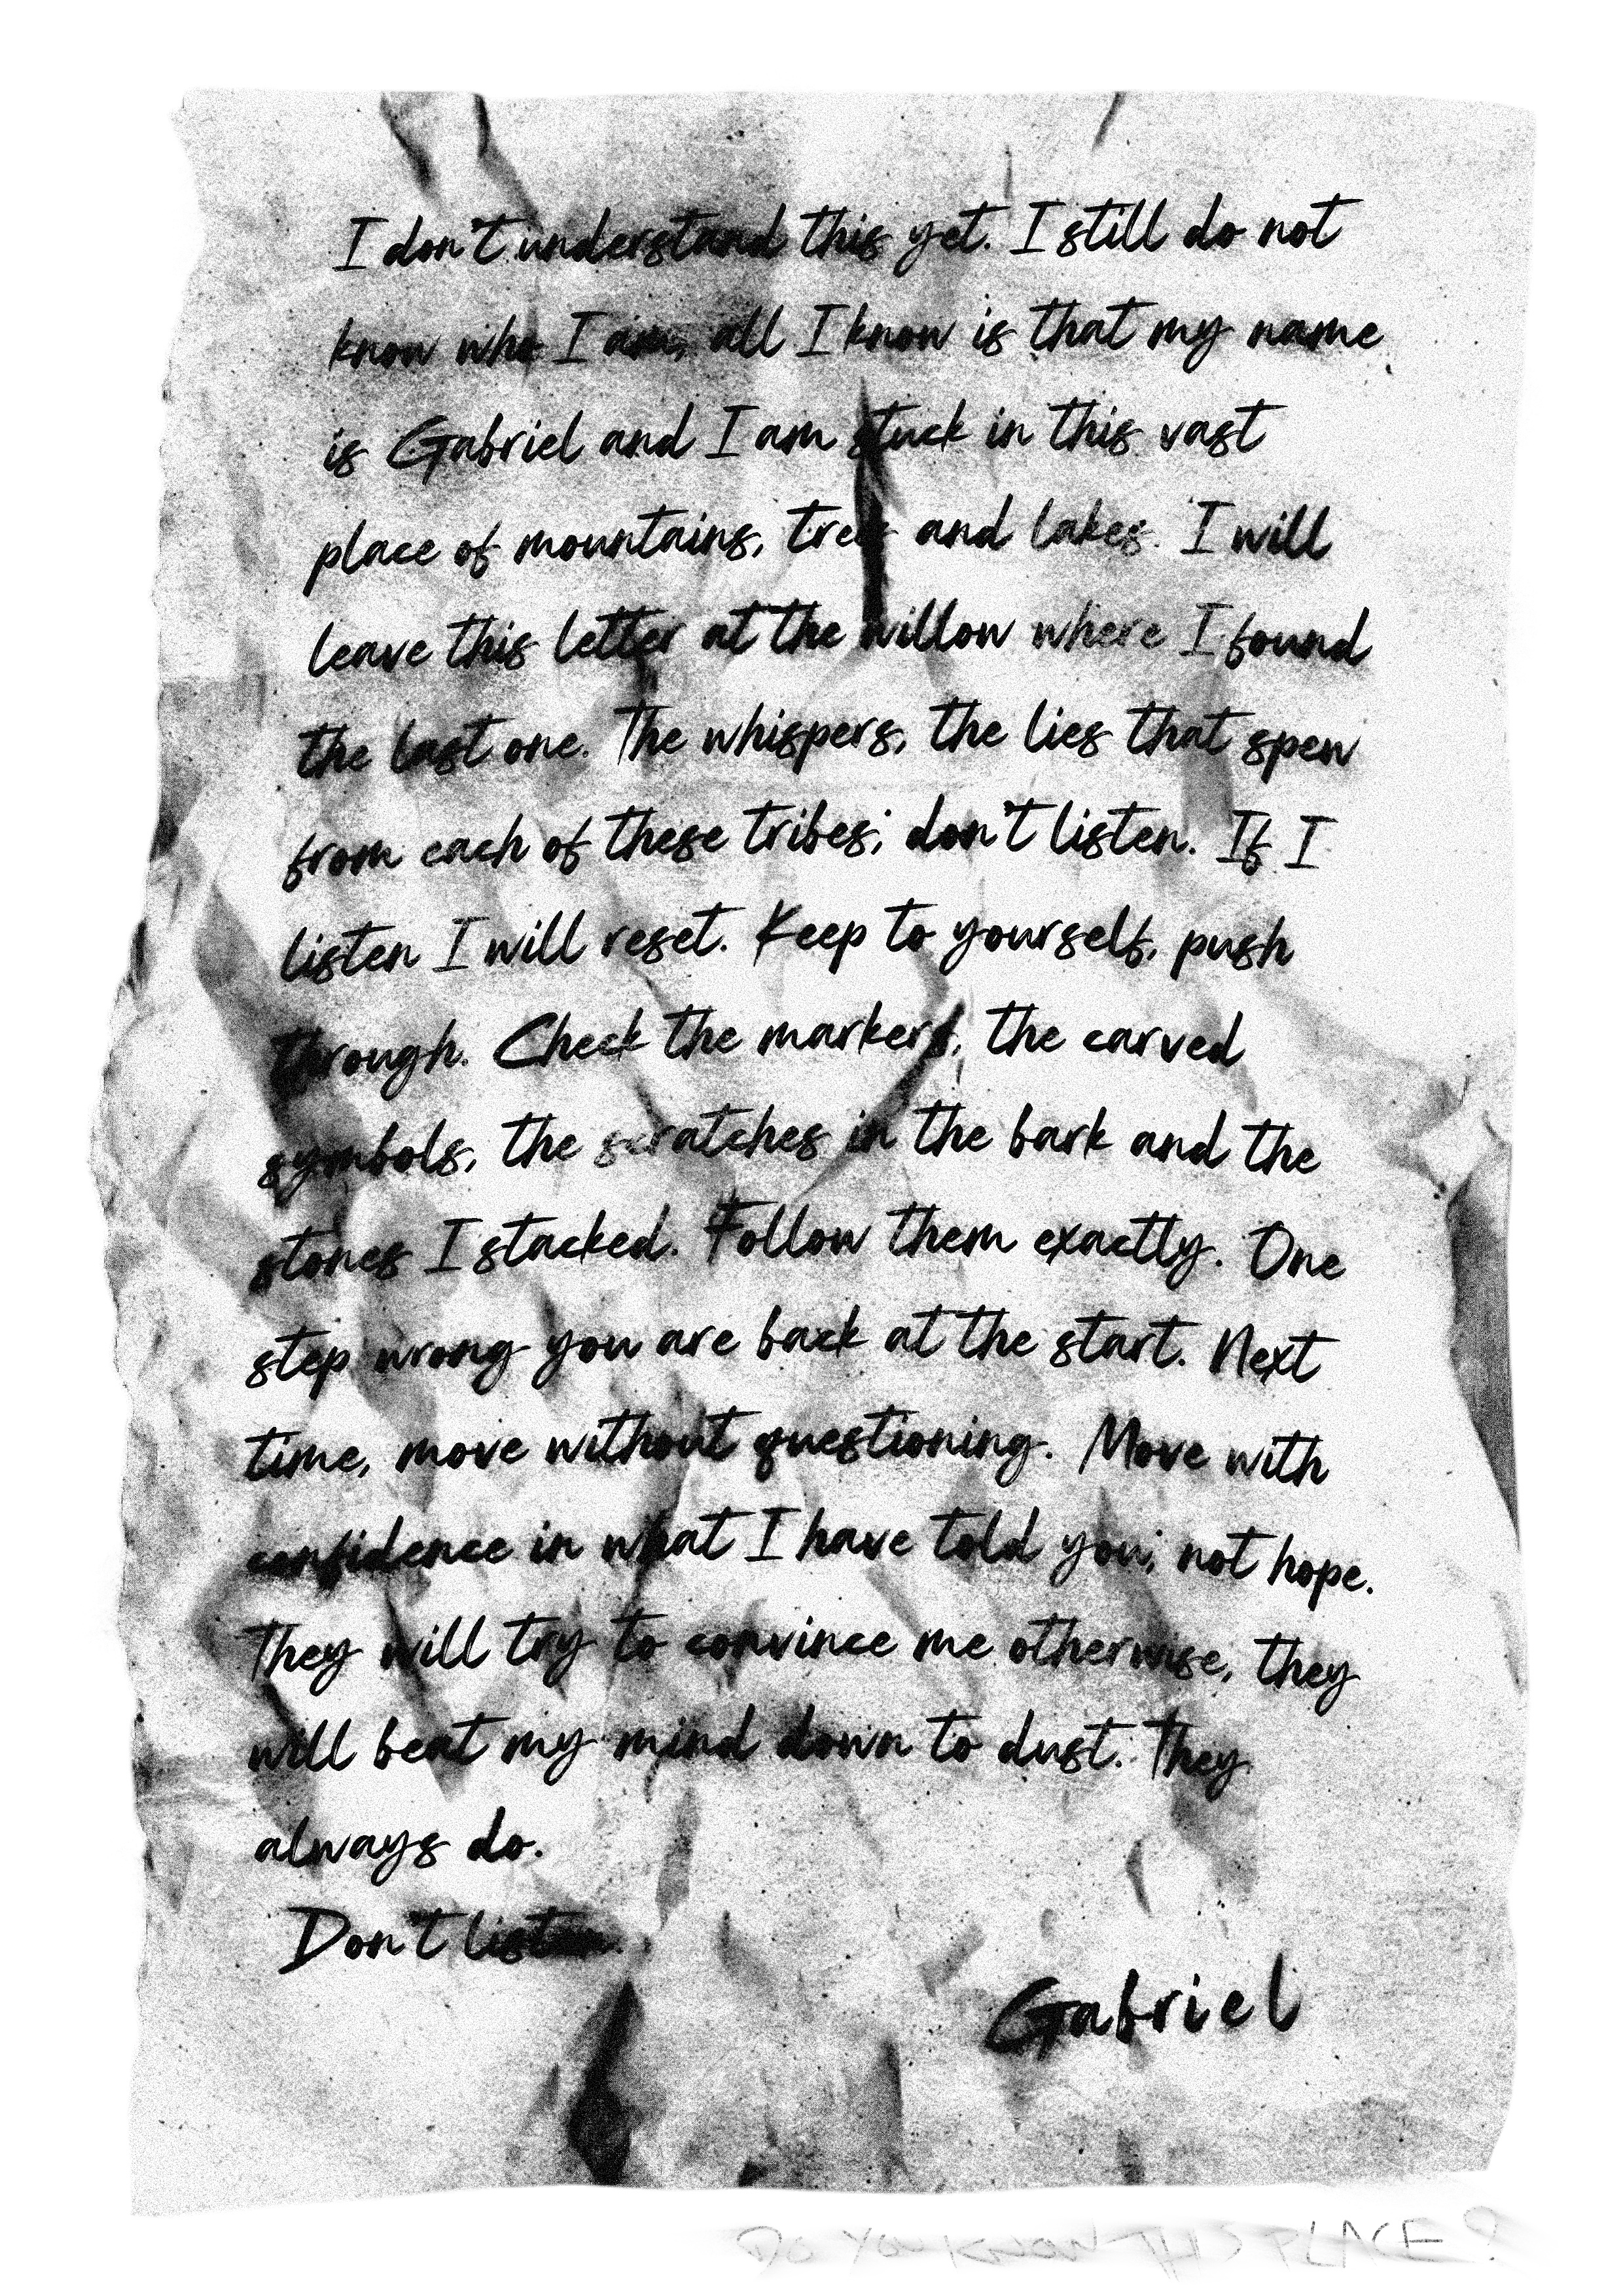 I don't understand this yet. I still do not
know who I am, all I know is that my name
is Gabriel and I am stuck in this vast
place of mountains, trees and lakes. I will
leave this letter at the willow where I found
the last one. The whispers, the lies that spew
from each of these tribes; don't listen. If I
listen I will reset. Keep to yourself, push
through. Check the markers, the carved
symbols, the scratches in the bark and the
stones I stacked. Follow them exactly. One
step wrong you are back at the start. Next
time, move without questioning. Move with
confidence in what I have told you; not hope.
They will try to convince me otherwise, they
will beat my mind down to dust. They
always do.
Don't listen.
Gabriel
DO YOU KNOW THIS PLACE?